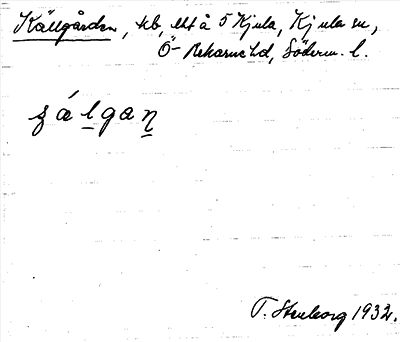 Källgården, hb, lht å 5 Kjula, Kjula sn,
Ö-Rekarne hd, Söderm. l.
sálgaṉ
T. Stenborg 1932.